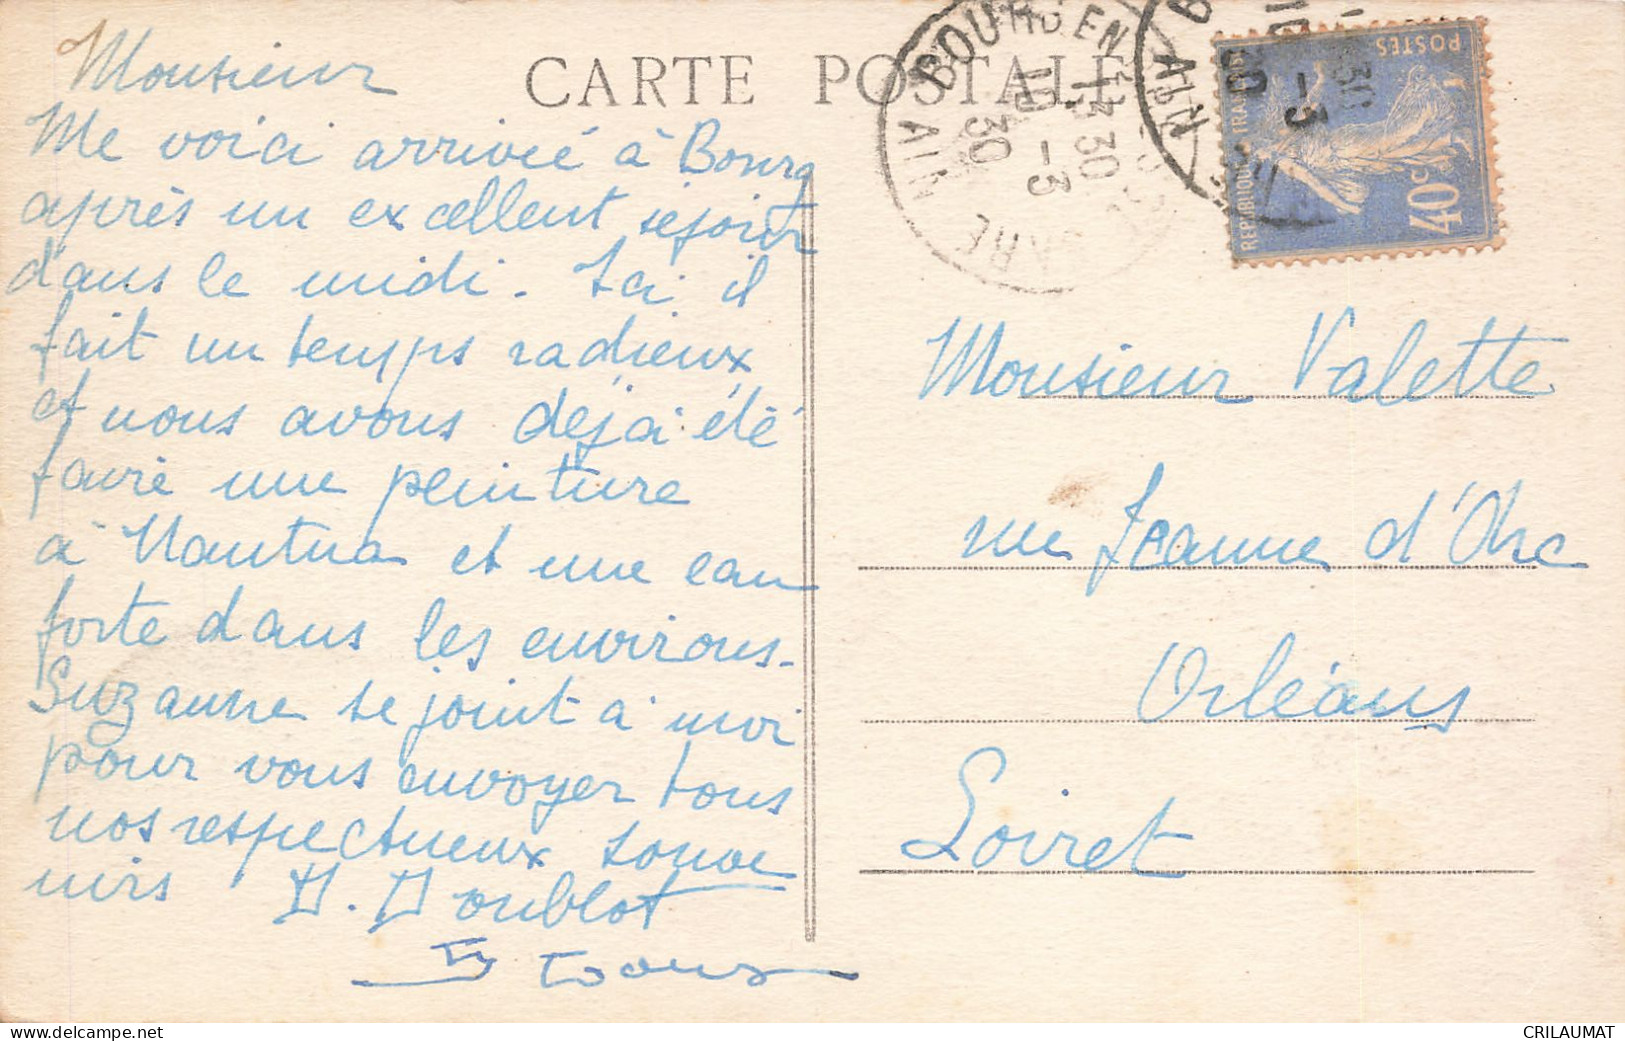 CARTE POSTALE
Monsieur
Me voici arrivée à Bourg
après un excellent séjour
dans le midi. Ici il
fait un temps radieux
et nous avons déjà été
faire une peinture
à Nantua et une eau
forte dans les environs.
Suzanne se joint à moi
pour vous envoyer tous
nos respectueux souve
nirs
Doublot
BOURG EN
AIN
GARE
13 30
10 -3
30
REPUBLIQUE FRANÇAISE
POSTES
40c
Monsieur Valette
rue Jeanne d'Arc
Orléans
Loiret
CRILAUMAT